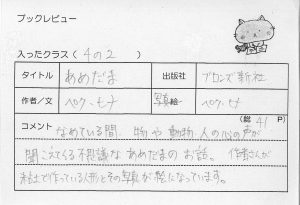 ブックレビュー
入ったクラス（ 4の2 ）
タイトル あめだま 出版社 ブロンズ新社
作者/文 ペク・ヒナ 写真絵 ペク・ヒナ
（総 41 P）
コメント なめている間、物や動物、人の心の声が
聞こえてくる不思議なあめだまのお話。作者さんが
粘土で作っている人形とその写真が絵になっています。